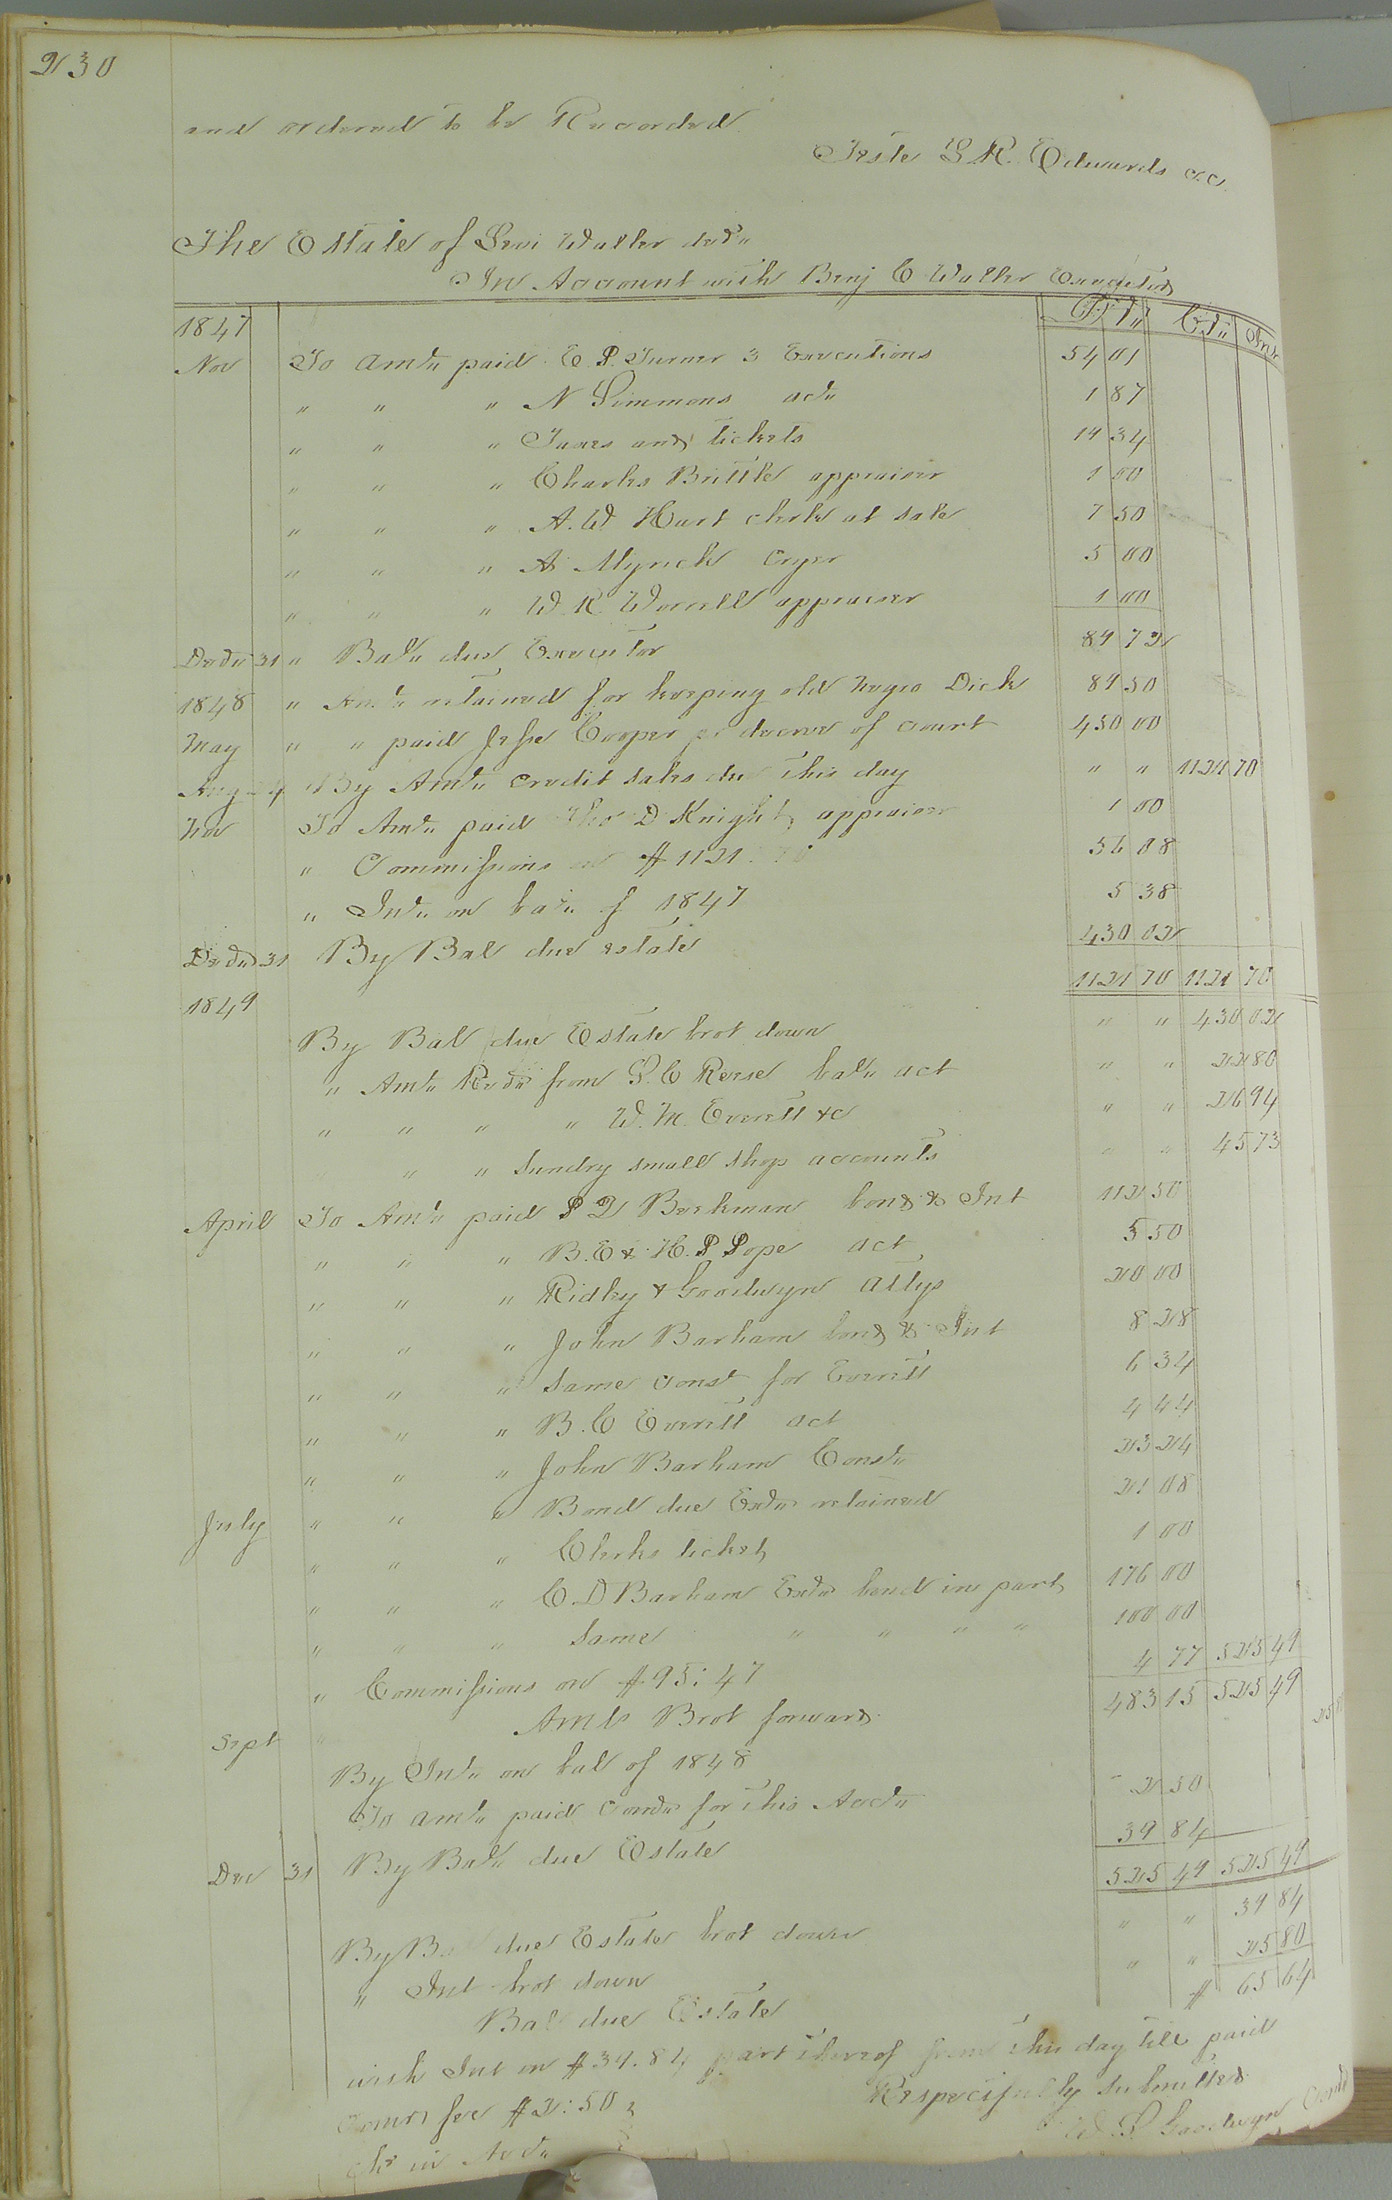 230
and ordered to be Recorded
Teste L R. Edwards cc.
The Estate of Levi Waller decd"
In Account with Benj C Waller Executor
1847 Dr" Cr" Int
Nov To Amt" paid E P. Turner 3 Executions 54 01
" " " N Simmons act" 1 87
" " " Taxes and tickets 14 34
" " " Charles Brittle appraiser 1 00
" " " A. W Hart clerk at sale 7 50
" " " A Myrick Cryer 5 00
" " " W. K Worrell appraiser 1 00
Decr" 31 " Bal" due Executor 84 72
1848 " Amt" retained for keeping old negro Dick 84 50
May " " paid Jesse Cooper pr decree of Court 450 00
Aug 4 By Amt" credit sales due this day " " 1121 70
Nov To Amt" paid Tho D Knight appraiser 1 00
" Commissions on $1121. 70 56 08
" Int" on bal" of 1847 5 38
Decr" 31 By Bal due estate 430 02
1121 70 1121 70
1849
By Bal due Estate brot down " " 430 02
" Amt" Recd" from P. C Reese bal" act " " 22 80
" " " " W. M. Everett &c " " 26 94
" " Sundry small shop accounts " " 45 73
April To Amt" paid P D Barkman bond & Int 112 50
" " " B. E & H. P Pope act 5 50
" " " Ridley & Goodwyn Attys 20 00
" " " John Barham bond & Int 8 28
" " " Same Const for Everett 6 34
" " " B. C Everett act 4 44
" " " John Barham Const" 23 24
July " " " Bond due Exr" retained 21 08
" " " Clerks ticket 1 00
" " " C. D Barham Exr" bond in part 176 00
" " " Same " " " " 100 00
" Commissions on $95: 47 4 77 525 49
Sept " Amts Brot forward 483 15 525 49
By Int" on bal of 1848 25
To amt" paid Comr" for this Acct" 2 50
Dec 31 By Bal" due Estate 39 84
525 49 525 49
By Bal due Estate brot down " " 39 84
" Int brot down " " 25 80
Bal due Estate $ 65 64
with Int on $39.84 part thereof from this day till paid
Comrs fee $2:50 } Respectfully submitted
chd in Acct" } W. S. Goodwyn Comr